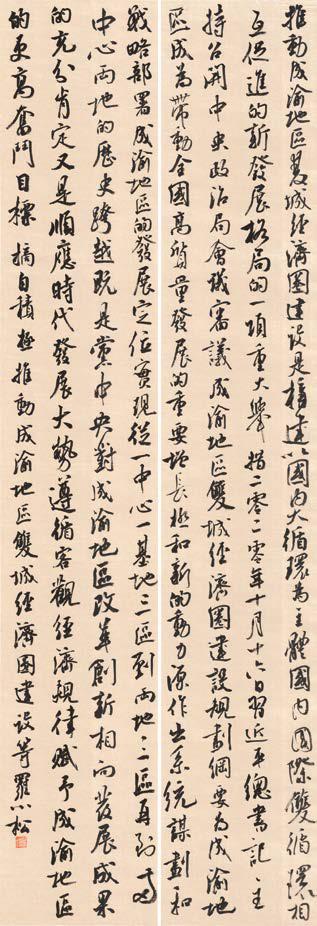 推動成渝地區雙城經濟圈建設是構建以國內大循環為主體國內國際雙循環相
互促進的新發展格局的一項重大舉措二零二零年十月十六日習近平總書記主
持召開中央政治局會議審議成渝地區雙城經濟圈建設規劃綱要為成渝地
區成為帶動全國高質量發展的重要增長極和新的動力源作出系統謀劃和
戰略部署成渝地區的發展定位實現從一中心一基地三區到兩地三區再到兩
中心兩地的歷史跨越既是黨中央對成渝地區改革創新相向發展成果
的充分肯定又是順應時代發展大勢遵循客觀經濟規律賦予成渝地區
的更高奮鬥目標 摘自積極推動成渝地區雙城經濟圈建設等 羅小松